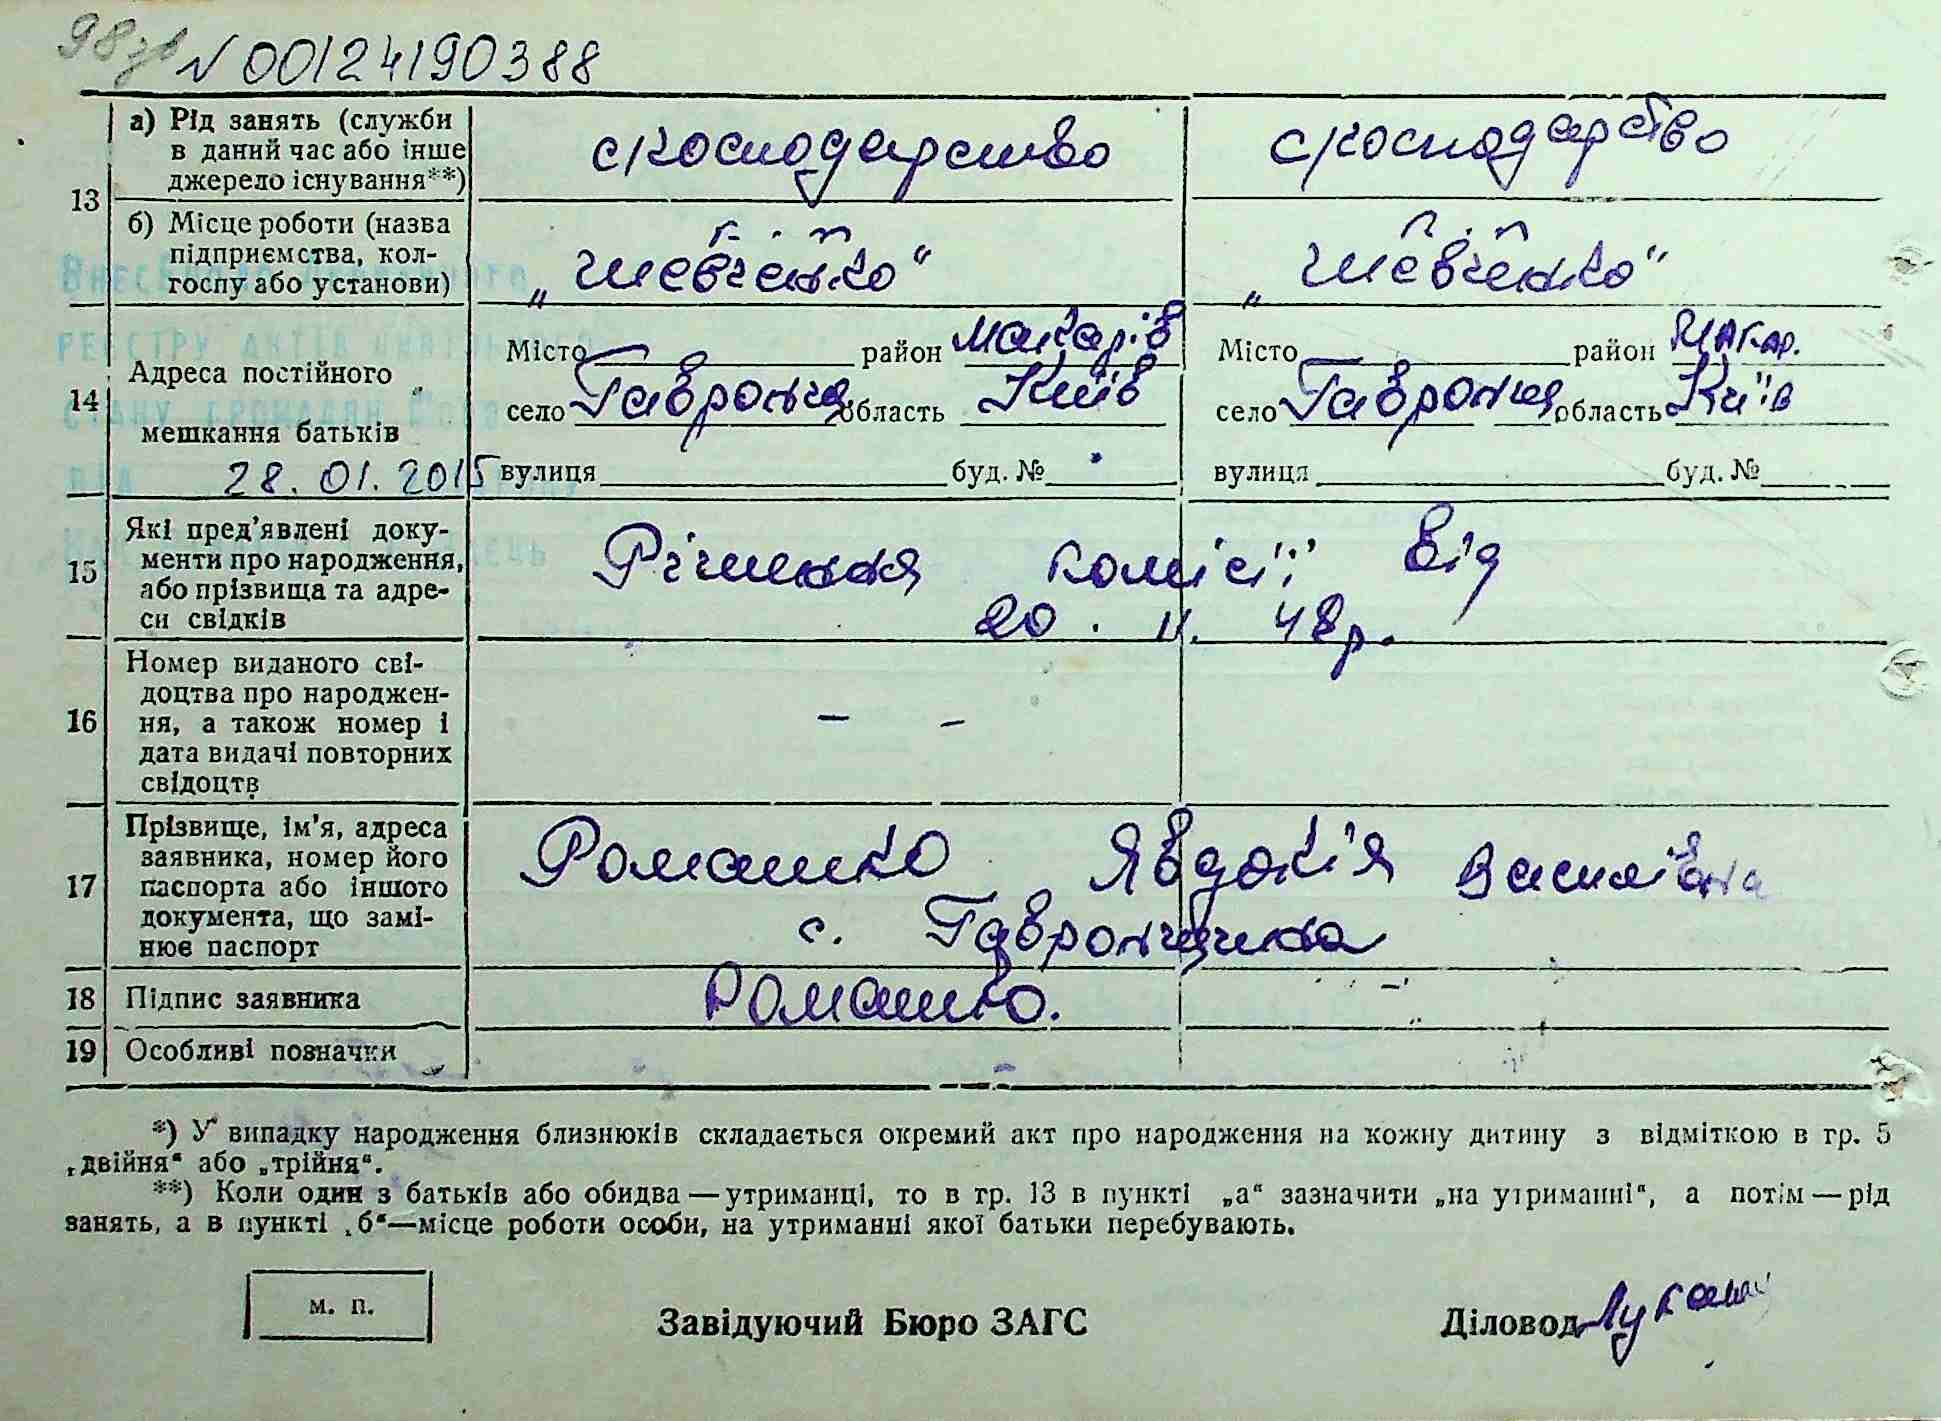 98зв N 00124190388
а) Рід занять (служби
в даний час або інше
джерело існування**)
с/господарство
с/господарство
13
б) Місце роботи (назва
підприємства, кол-
госпу або установи)
„Шевченко“
„Шевченко“
Внесено до Державного
реєстру актів цивільного
стану громадян
14
Адреса постійного
мешкання батьків
28.01.2015
Місто район Макарів
село Гавронщ область Київ
вулиця буд. №
Місто район Макар.
село Гавронщ область Київ
вулиця буд. №
15
Які пред’явлені доку-
менти про народження,
або прізвища та адре-
си свідків
Рішення комісії від
20. II. 48р.
16
Номер виданого сві-
доцтва про народжен-
ня, а також номер і
дата видачі повторних
свідоцтв
– –
17
Прізвище, ім’я, адреса
заявника, номер його
паспорта або іншого
документа, що замі-
нює паспорт
Романко Явдокія Василівна
с. Гавронщина
18 Підпис заявника
Романко.
19 Особливі позначки
*) У випадку народження близнюків складається окремий акт про народження на кожну дитину з відміткою в гр. 5
„двійня“ або „трійня“.
**) Коли один з батьків або обидва — утриманці, то в гр. 13 в пункті „а“ зазначити „на утриманні“, а потім — рід
занять, а в пункті „б“—місце роботи особи, на утриманні якої батьки перебувають.
м. п.
Завідуючий Бюро ЗАГС
Діловод